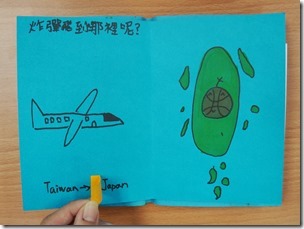 炸彈到那裡呢?
Taiwan → Japan